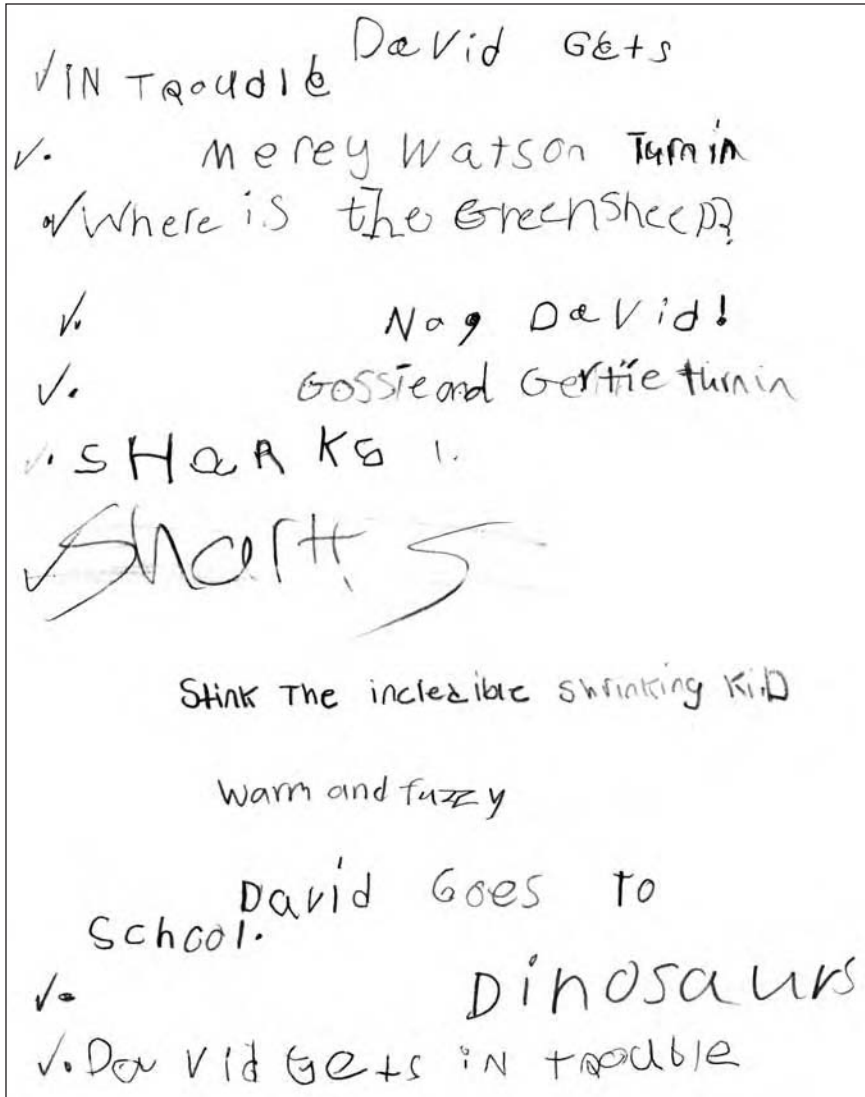 David Gets
✓IN TRoudle
✓. Merey Watson Turn in
✓Where is the Greensheep?
✓. No, David!
✓. Gossie and Gertie turn in
✓. SHaRKS
✓Sharks
Stink The incledible shrinking KiD
Warm and fuzzy
David Goes To
School.
✓. Dinosaurs
✓. David Gets iN tRouble